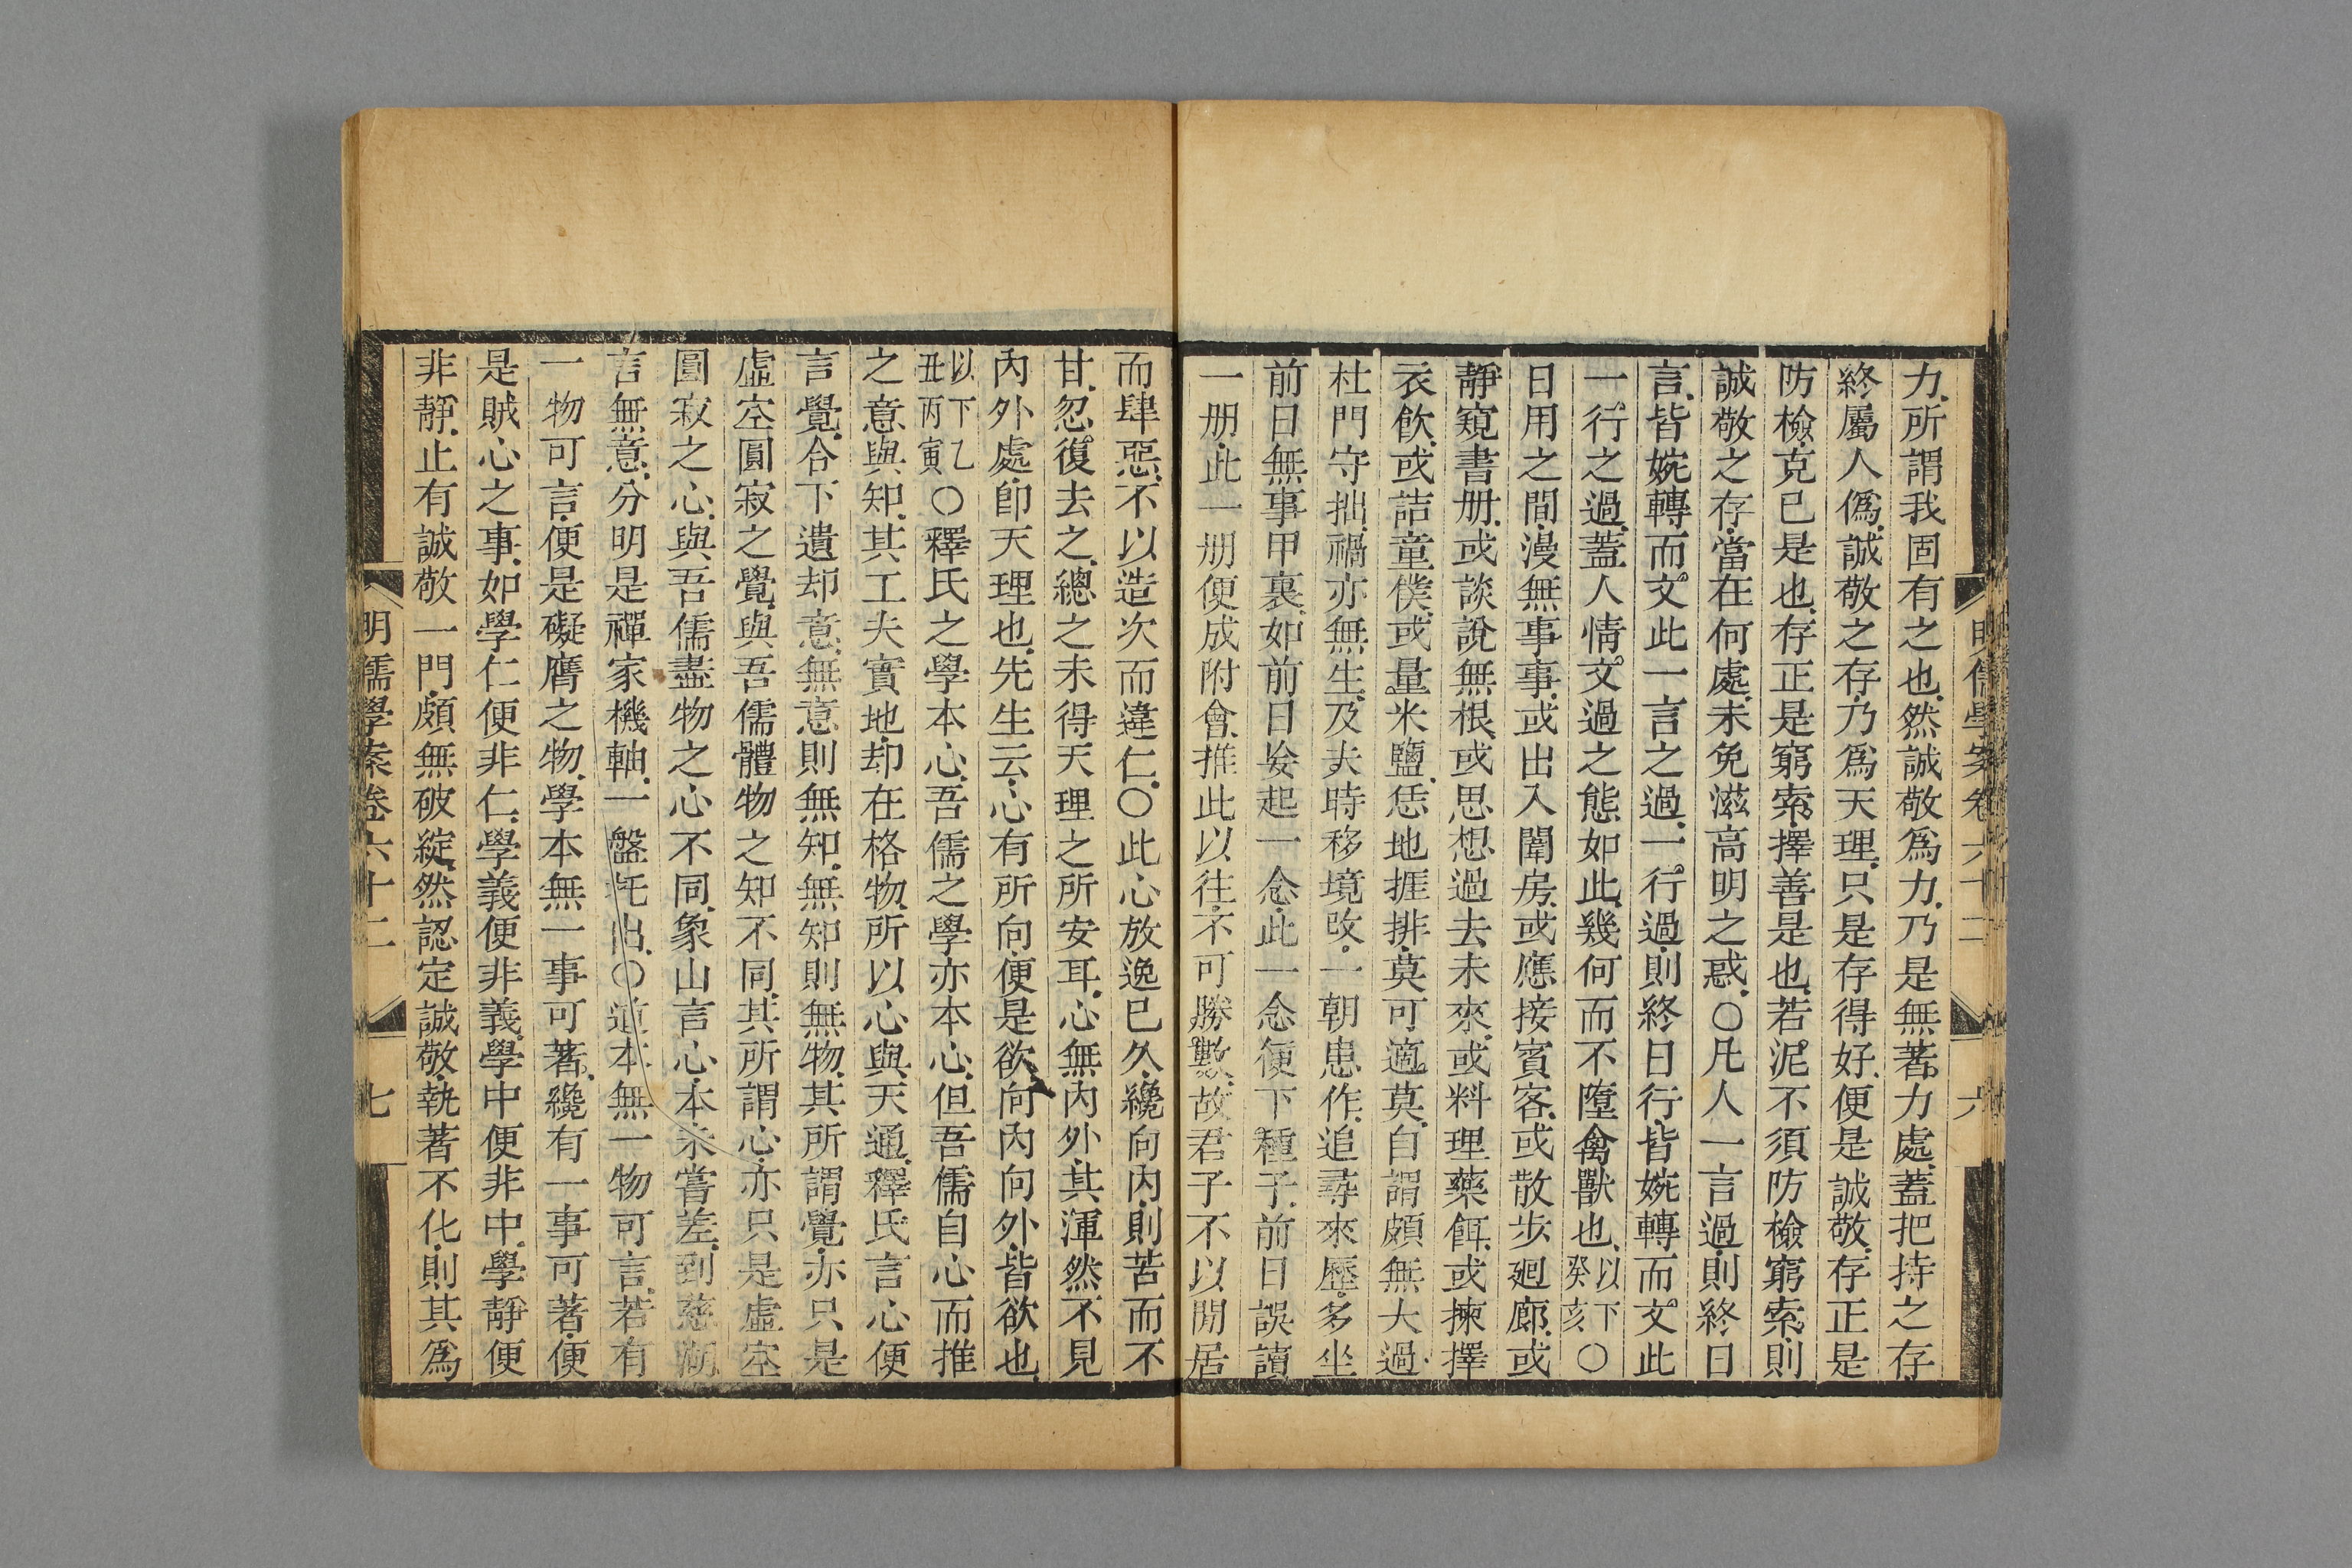 明儒學案卷六十二
六
力所謂我固有之也然誠敬爲力乃是無著力處蓋把持之存
終屬人僞誠敬之存乃爲天理只是存得好便是誠敬存正是
防檢克已是也存正是窮索擇善是也若泥不須防檢窮索則
誠敬之存當在何處未免滋高明之惑○凡人一言過則終日
言皆婉轉而文此一言之過一行過則終日行皆婉轉而文此
一行之過蓋人情文過之態如此幾何而不墮禽獸也以下癸亥○
日用之間漫無事事或出入闈房或應接賓客或散步廻廊或
靜窺書册或談說無根或思想過去未來或料理藥餌或揀擇
衣飲或詰童僕或量米鹽恁地捱排莫可適莫自謂頗無大過
杜門守拙禍亦無生及夫時移境改一朝患作追尋來歷多坐
前日無事甲裏如前日妄起一念此一念便下種子前日誤讀
一册此一册便成附會推此以往不可勝數故君子不以閒居
而肆惡不以造次而違仁○此心放逸已久纔向內則苦而不
甘忽復去之總之未得天理之所安耳心無內外其渾然不見
內外處卽天理也先生云心有所向便是欲向內向外皆欲也
以下乙丑丙寅○釋氏之學本心吾儒之學亦本心但吾儒自心而推
之意與知其工夫實地却在格物所以心與天通釋氏言心便
言覺合下遺却意無意則無知無知則無物其所謂覺亦只是
虛空圓寂之覺與吾儒體物之知不同其所謂心亦只是虛空
圓寂之心與吾儒盡物之心不同象山言心本未嘗差到慈湖
言無意分明是禪家機軸一盤托出○道本無一物可言若有
一物可言便是礙膺之物學本無一事可著纔有一事可著便
是賊心之事如學仁便非仁學義便非義學中便非中學靜便
非靜止有誠敬一門頗無破綻然認定誠敬執著不化則其爲
明儒學案卷六十二
七